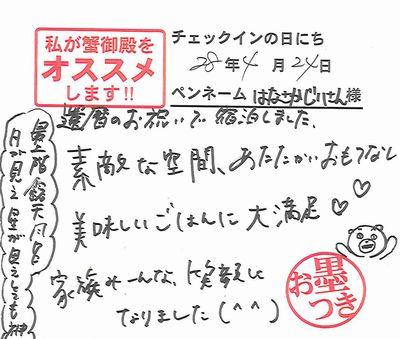 私が蟹御殿を
オススメ
します!!
チェックインの日にち
28年4月24日
ペンネーム はなさかじいさん様
還暦のお祝いで宿泊しました、
素敵な空間、あたたかいおもてなし
美味しいごはんに大満足
家族みーんな、笑顔に
なりました(^^)
最上階露天風呂
月が見え 星が見えとても
お墨つき